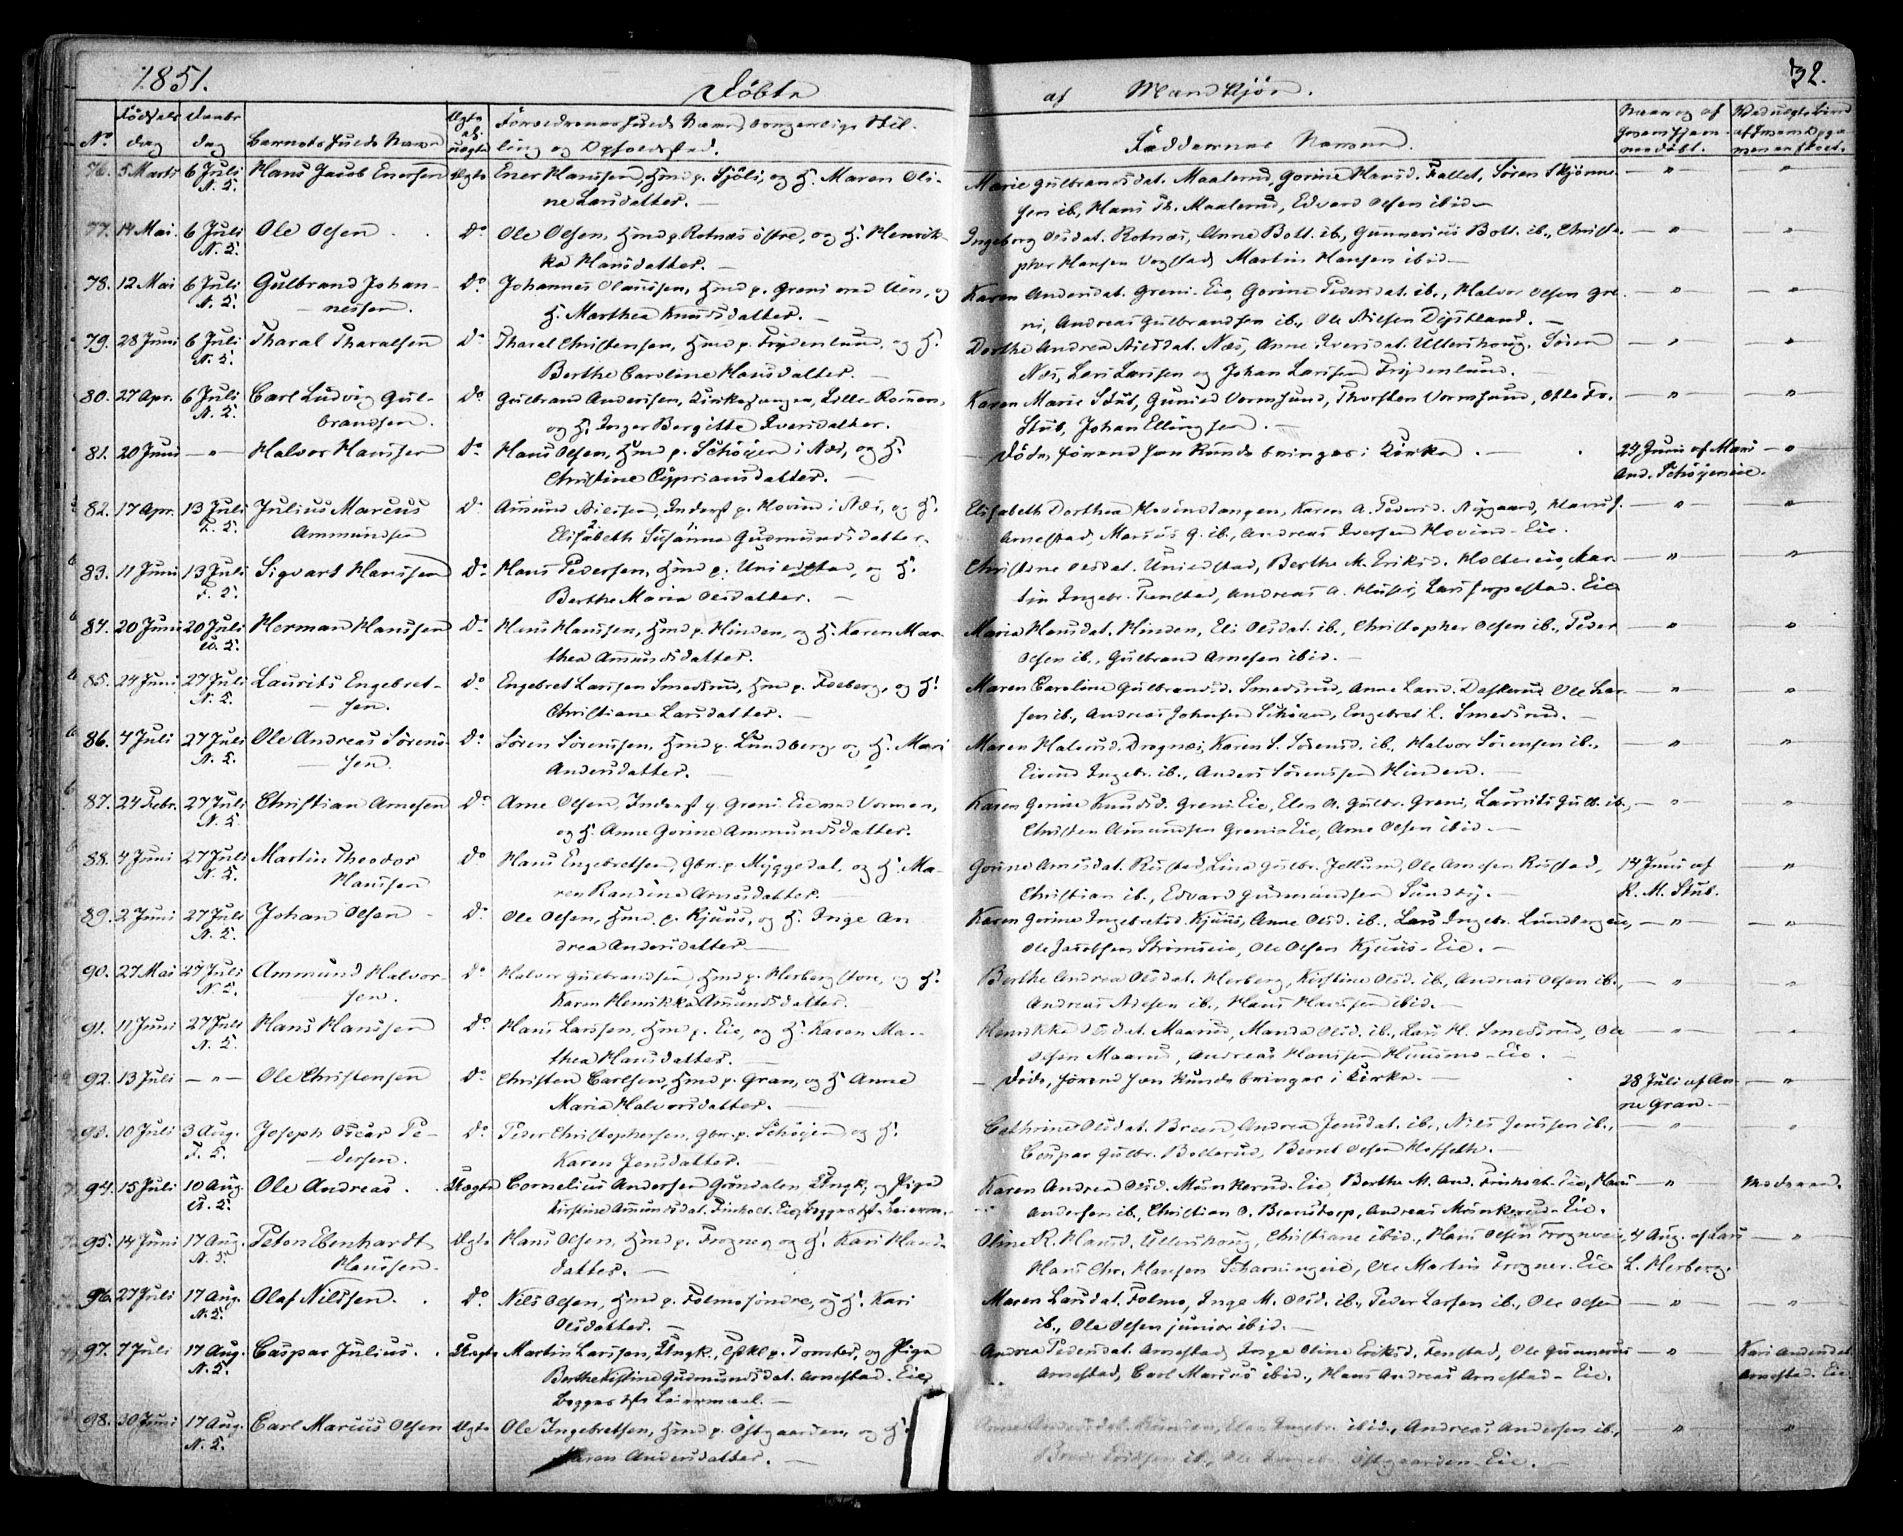 1851. Döbte af Mandkjön. 32.
No Födsels dag Daabs dag Barnets fulde Navn Ægte el. uægte Forældrenes fulde Navn, borgerlige Stilling og Opholdssted. Faddernes Navne. Naar og af hvem hjemmedöbt. Ved uægte Börn af hvem Opgivelsen er skeet.
76. 5 Marts 6 Juli N. K. Hans Jacob Enersen Ægte Ener Hanssen, Hmd p. Sjöli, og H. Maren Oli-
ne Larsdatter. —
Marie Gulbrandsdat. Maalerud, Gorine Hansd. Fallet, Sören Skjönne-
sen ib, Hans Th. Maalerud, Edvard Olsen ibid —
77. 14 Mai. 6 Juli N. K. Ole Olsen Do Ole Olsen, Hmd p. Rotnæs östre, og H. Henrik-
ka Hansdatter. —
Ingeborg Olsdat. Rotnæs, Anne Bott. ib., Gunnerius Bott. ib., Christo-
pher Hansen Martin Hansen ibid —
78. 12 Mai 6 Juli N. K. Gulbrand Johan-
nessen. Do Johannes Olaussen, Hmd p. Greni med Uen, og
H. Marthea Knudsdatter. —
Karen Andersdat. Greni-Eie, Gorine Pedersdat. ib., Halvor Olsen Gre-
ni, Andreas Gulbrandsen ib., Ole Nilsen Dystland. —
79. 28 Juni 6 Juli N. K. Tharal Tharalsen Do Tharal Christensen, Hmd p. Frydenlund, og H.
Berthe Caroline Hansdatter. —
Dorthe Andrea Nilsdat. Næs, Anne Iversdat. Ullershoug, Sören
Næs, Lars Larssen og Johan Larssen Frydenlund. —
80. 27 Apr. 6 Juli N. K. Carl Ludvig Gul-
brandsen. Do Gulbrand Anderssen, Kirkesanger, Lille Romen,
og H. Inger Bergitte Iversdatter.
Karen Marie Stub, Gunild Vormsund, Thorsten Vormsund, Otto Fr.
Stub, Johan Ellingsen. —
81. 20 Juni — " — Halvor Hanssen Do Hans Olsen, Hmd p. Schöyen i Næs, og H.
Christine Cypriansdatter. —
— Döde, förend han kunde bringes i Kirke. — 29 Juni af Mari
And. Schöyeneie.
82. 17 Apr. 13 Juli F. K. Julius Marcus
Ammundsen Do Amund Nilssen, Inderst p. Hovind i Næs, og H.
Elisabeth Susanna Gudmundsdatter.
Elisabeth Dorthea Hovindsangen, Karen A. Pedersd. Nygaard, Hans
Arnestad, Marius G. ib., Andreas Iversen Hovind-Eie.
83. 11 Juni 13 Juli F. K. Sigvart Hanssen Do Hans Pedersen, Hmd p. Uniedstad, og H.
Berthe Maria Olsdatter. —
Christine Olsdat. Uniedstad, Berthe M. Eriksd. Holtereie, Mar-
tin Ingebr. Fenstad, Andreas A. Lars Eie
84. 20 Juni 20 Juli Herman Hanssen Do Hans Hanssen, Hmd p. Hinden, og H. Karen Mar-
thea Amundsdatter. —
Maria Hansdat. Hinden, Eli Olsdat. ib., Christopher Olsen ib., Peder
Olsen ib., Gulbrand Arnesen ibid. —
85. 24 Juni 27 Juli N. K. Laurits Engebret-
sen. Do Engebret Larssen Smedsrud, Hmd p. Foeberg, og H.
Christiane Larsdatter. —
Maren Caroline Gulbrandsd. Smedsrud, Anne Larsd. Ole Lar-
sen ib., Andreas Johnsen Schöyen, Engebret L. Smedsrud. —
86. 4 Juli 27 Juli N. K. Ole Andreas Sörens-
sen. Do Sören Sörenssen, Hmd p. Lundberg og H. Mari
Andersdatter. —
Maren Halvorsd. Dragnæs, Karen S. Sörensd. ib., Halvor Sörensen ib.,
Eivind Ingebr. ib., Anders Sörenssen Hinden. —
87. 24 Febr. 27 Juli N. K. Christian Arnesen Do Arne Olsen, Inderst p. Greni-Eie med Vormen,
og H. Anne Gorine Ammundsdatter.
Karen Gorine Knudsd. Greni-Eie, Elen A. Gulbr. Greni, Laurits Gulb. ib.,
Christen Amundsen Greni-Eie, Arne Olsen ibid. —
88. 4 Juni 27 Juli N. K. Martin Theodor
Hanssen Do Hans Engebretsen, Gbr. p. Myggedal, og H. Ma-
ren Randine Arnesdatter. —
Gorine Arnesdat. Rustad, Lina Gulbr. Jellum, Ole Arnesen Rustad,
Christian ib., Edvard Gudmundsen Sundby. — 14 Juni af
K. M. Stub.
89. 2 Juni 27 Juli N. K. Johan Olsen Do Ole Olsen, Hmd p. Kjuus, og H. Inge An-
drea Andersdatter. —
Karen Gorine Ingebretsd. Kjuus, Anne Olsd. ib., Lars Ingebr. Lundbergeie,
Ole Jacobsen Strömseie, Ole Olsen Kjuus-Eie. —
90. 27 Mai 27 Juli N. K. Ammund Halvor-
sen. Do Halvor Gulbrandsen, Hmd p. Herberg store, og H.
Karen Henrikka Amundsdatter.
Berthe Andrea Olsdat. Herberg, Kirstine Olsd. ib., Andreas Olsen ib.,
Andreas Nilsen ib., Hans Hanssen ibid. —
91. 11 Juni 27 Juli N. K. Hans Hanssen Do Hans Larssen, Hmd p. Eie, og H. Karen Ma-
thea Hansdatter. —
Henrikke Olsdat. Maarud, Manda Olsd. ib., Lars H. Smedsrud, Ole
Olsen Maarud, Andreas Hanssen Huusmo-Eie. —
92. 13 Juli — " — Ole Christensen Do Christen Carlsen, Hmd p. Gran, og H. Anne
Maria Halvorsdatter. —
— Döde, förend han kunde bringes i Kirke. — 28 Juli af An-
ne Gran. —
93. 10 Juli 3 Aug. F. K. Joseph Oscar Pe-
dersen. Do Peder Christophersen, Gbr. p. Schöyen, og H.
Karen Jensdatter. —
Cathrine Olsdat. Breen, Andrea Jensdat. ib., Nils Jenssen ib.,
Caspar Gulbr. Bollerud, Bernt Olsen Hesseth. —
94. 15 Juli 10 Aug. Ole Andreas. Uægte Cornelius Andersen Gröndalen, Ungk. og Pige
Kirstine Amundsdat. Finholt-Eie, begges 1ste Leierm.
Karen Andrea Olsd. Munkerud-Eie, Berthe M. And. Finholt-Eie, Hans
Andersen ib., Christian O. Brenstorp, Andreas Munkerud-Eie. Moderen.
95. 14 Juni 17 Aug. N. K. Peton Ebenhardt
Hanssen. Ægte Hans Olsen, Hmd p. Frogner, og H. Kari Hans-
datter. —
Oline R. Hansd. Ullershoug, Christiane ibid., Hans Olsen Frognereie, 4 Aug. af Lars
Hans Chr. Hansen Scharningeie, Ole Martin Frogner-Eie L. Herberg.
96. 27 Juli 17 Aug. N. K. Olaf Nilssen. Do Nils Olsen, Hmd p. Folmo söndre, og H. Kari
Olsdatter. —
Maren Larsdat. Folmo, Inge M. Olsd. ib., Peder Larsen ib., Ole Olsen
ib., Ole Olsen junior ibid. —
97. 7 Juli 17 Aug. N. K. Caspar Julius. Uægte Martin Larssen, Ungk., p. Tomter, og Pige
Berthe Kistine Gudmundsdat. Arnestad-Eie,
begges 1ste Leiermaal. —
Andrea Pedersdat. Arnestad, Inge Oline Eriksd. Fenstad, Ole Gunnerius
Arnestad, Carl Marius ibid., Hans Andreas Arnestad-Eie. Kari Andersdat.
Arnestad-Eie
98. 30 Juni 17 Aug. N. K. Carl Marius Olsen Ægte Ole Ingebretsen, Hmd p. Östgaarden, og H.
Karen Andersdatter. —
Anne Andersdat. Elen Ingebr. ibid., Andreas Andersen ib.,
ib., Ole Ingebr. Östgaarden-Eie. —